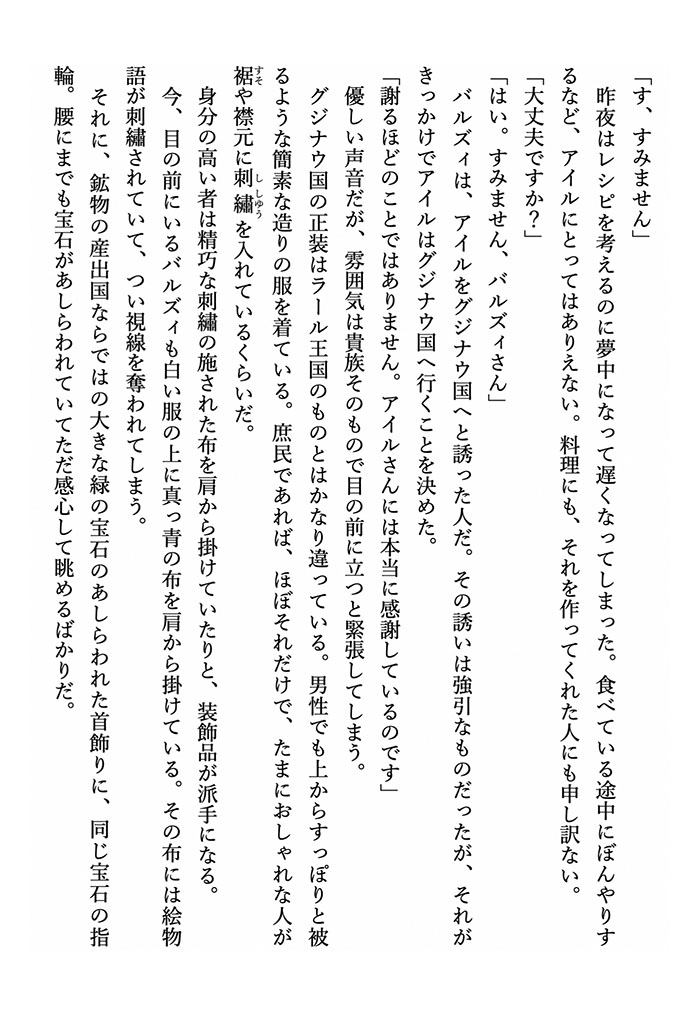 「す、すみません」
昨夜はレシピを考えるのに夢中になって遅くなってしまった。食べている途中にぼんやりす
るなど、アイルにとってはありえない。料理にも、それを作ってくれた人にも申し訳ない。
「大丈夫ですか？」
「はい。すみません、バルズィさん」
バルズィは、アイルをグジナウ国へと誘った人だ。その誘いは強引なものだったが、それが
きっかけでアイルはグジナウ国へ行くことを決めた。
「謝るほどのことではありません。アイルさんには本当に感謝しているのです」
優しい声音だが、雰囲気は貴族そのもので目の前に立つと緊張してしまう。
グジナウ国の正装はラール王国のものとはかなり違っている。男性でも上からすっぽりと被
るような簡素な造りの服を着ている。庶民であれば、ほぼそれだけで、たまにおしゃれな人が
裾や襟元に刺繡を入れているくらいだ。
身分の高い者は精巧な刺繡の施された布を肩から掛けていたりと、装飾品が派手になる。
今、目の前にいるバルズィも白い服の上に真っ青の布を肩から掛けている。その布には絵物
語が刺繡されていて、つい視線を奪われてしまう。
それに、鉱物の産出国ならではの大きな緑の宝石のあしらわれた首飾りに、同じ宝石の指
輪。腰にまでも宝石があしらわれていてただ感心して眺めるばかりだ。